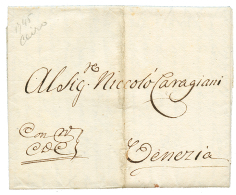 1745
Cairo
Al Sig.re Niccolò Caragiani
Con N°
CDC
Venezia